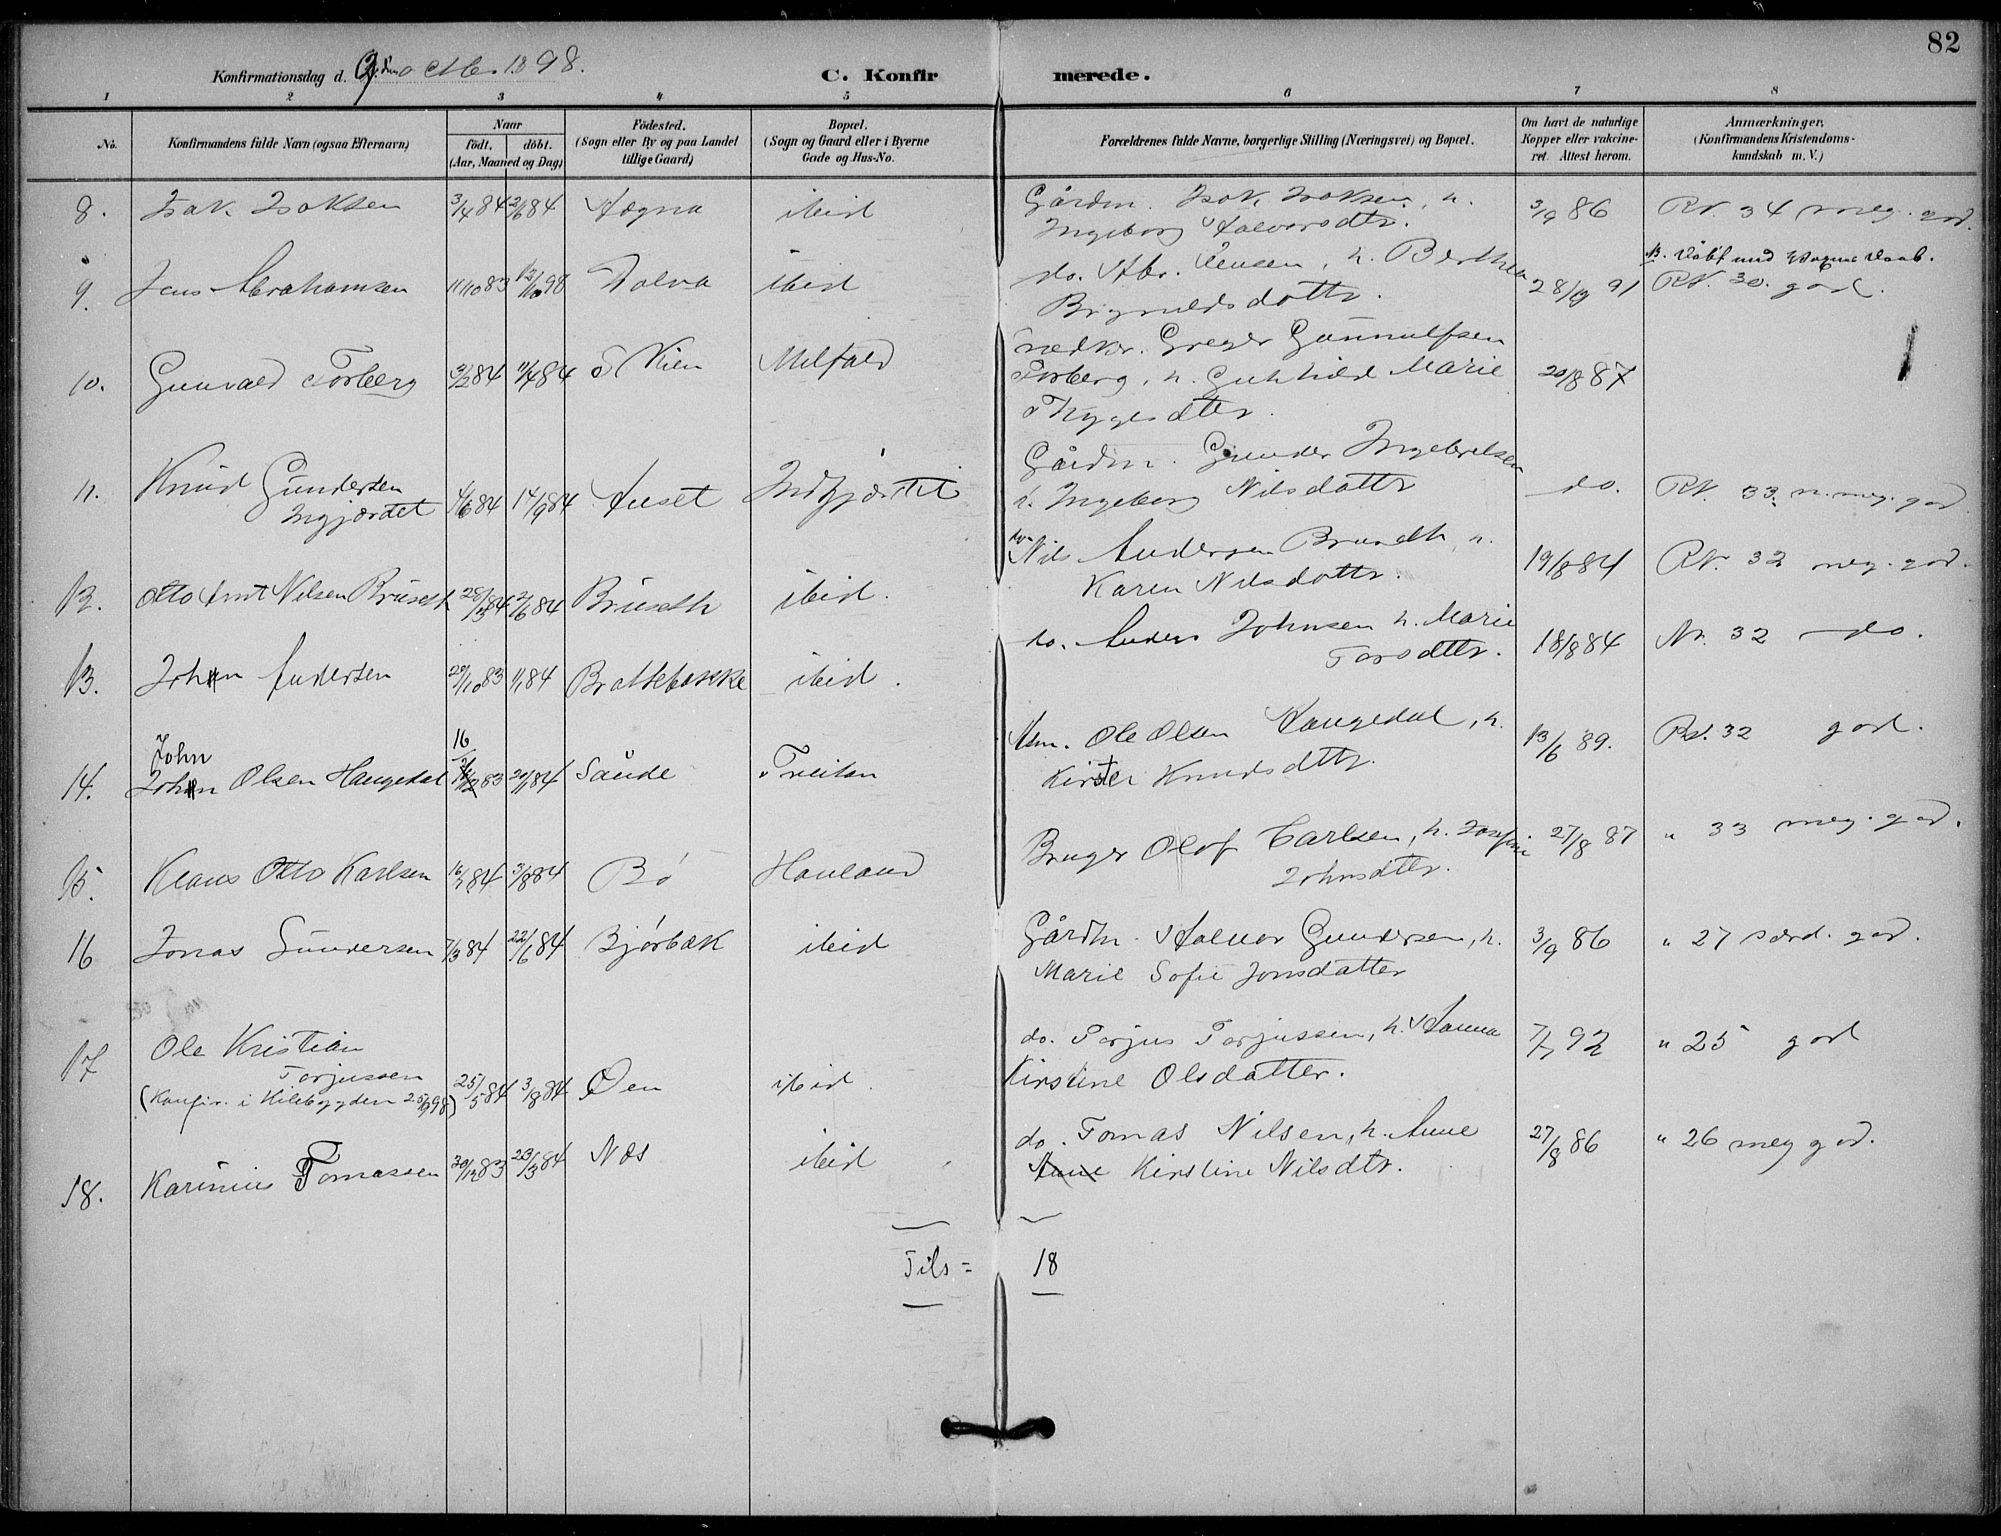 82
Konfirmationsdag d. 2den october 1898.
C. Konfirmerede.
1 2 3 4 5 6 7 8
No. Konfirmandens fulde Navn (ogsaa Efternavn) Naar födt. döbt. (Aar, Maaned og Dag) Födested. (Sogn eller By og paa Landet tillige Gaard) Bopæl. (Sogn og Gaard eller i Byerne Gade og Hus-No. Forældrenes fulde Navne, borgerlige Stilling (Næringsvei) og Bopæl. Om havt de naturlige Kopper eller vakcineret. Attest herom. Anmærkninger. (Konfirmandens Kristendomskundskab m. V.)
8. Isak Isaksen 3/4 84 2/6 84 Høgna ibid Gårdm. Isak Isaksen, h.
Ingeborg Halvorsdtr. 3/9 86 RN. 34 meg. god.
9. Jens Abrahamsen 11/10 83 12/10 98 Dolva ibid do. Abr. Jensen, h. Berthea
Brynildsdottr. 28/9 91 RN. 30. god.
10. Gunvald Torberg 3/2 84 11/4 84 Skien Melfald Snedkr. Greger Gunnulfsen
Torberg, h. Gunhild Marie
Thygesdtr. 20/8 87
11. Knud Gundersen
Ingjærdet 4/6 84 14/9 84 Huset Indgjærdet Gårdm. Gunder Ingebretsen
h. Ingeborg Nilsdattr do. RN. 33. n. meg. god
12. Otto Amt Nilsen Bruseth 28/3 84 2/6 84 Bruseth ibid. do. Nils Andersen Bruseth, h.
Karen Nilsdottr. 19/8 84 RN. 32 meg. god.
13. John Andersen 29/10 83 1/1 84 Brattebakke ibid. do. Anders Johnsen h. Marie
Torsdttr. 18/8 84 N. 32 do.
14. John
John Olsen Haugedal 16 83 20/1 84 Saude Treitan Hsm. Ole Olsen Haugedal, h.
Kirsten Knudsdttr. 13/6 89. Rel. 32 god.
15. Klaus Otto Karlsen 16/7 84 3/8 84 Bø Hauland Bruger Olof Carlsen, h. Josefine
Johnsdttr. 27/8 87 " 33 meg. god.
16 Jonas Gundersen 7/3 84 22/6 84 Bjørbæk ibid Gårdm. Halvor Gundersen, h.
Marie Sofie Jonsdatter 3/9 86 " 27 særd. god.
17 Ole Kristian
Torjussen
(Konfir. i Kilebygden 25/9 98) 25/5 84 3/8 84 Øen ibid. do. Torjus Torjussen, h. Hanna
Kirstine Olsdatter. 7/7 92 " 25 god
18. Karinius Tomassen 30/12 83 23/3 84 Næs ibid do. Tomas Nilsen, h. Anne
Anne Kirstine Nilsdtr. 27/8 86 " 26 meg god.
Tils = 18